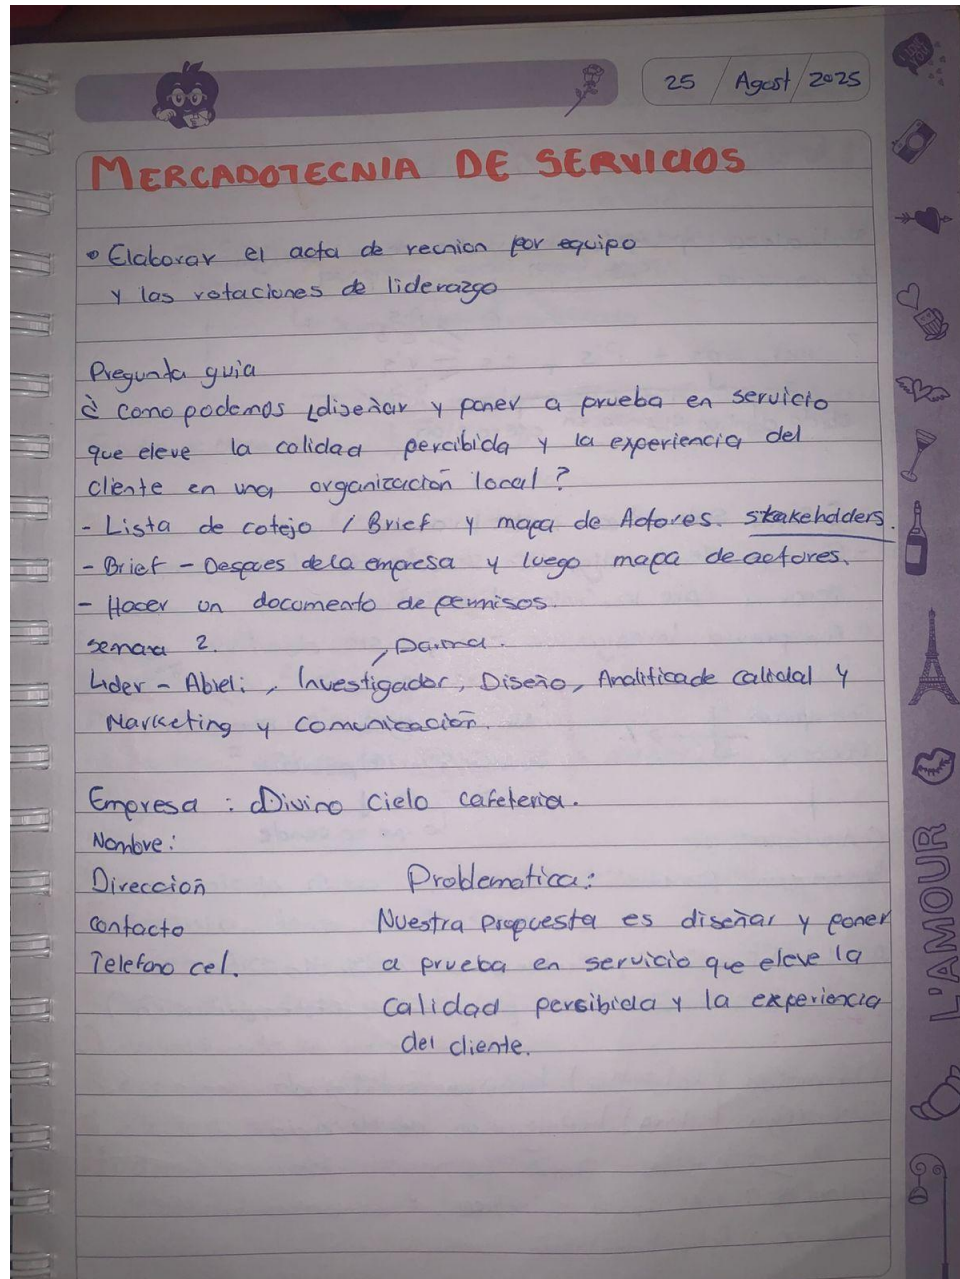 25 / Agost / 2025
MERCADOTECNIA DE SERVICIOS
• Elaborar el acta de reunion por equipo
y las rotaciones de liderazgo
Pregunta guia
¿ Como podemos diseñar y poner a prueba en servicio
que eleve la calidad percibida y la experiencia del
cliente en una organización local?
- Lista de cotejo / Brief y mapa de Actores. stakeholders.
- Brief - Despues de la empresa y luego mapa de actores.
- Hacer un documento de permisos.
semana 2. Danna.
Lider - Abieli, Investigador, Diseño, Analitica de calidal y
Marketing y comunicación.
Empresa : Divino Cielo cafeteria.
Nombre:
Dirección Problematica:
contacto Nuestra Propuesta es diseñar y poner
Telefono cel. a prueba en servicio que eleve la
calidad persibida y la experiencia
del cliente.
L'AMOUR